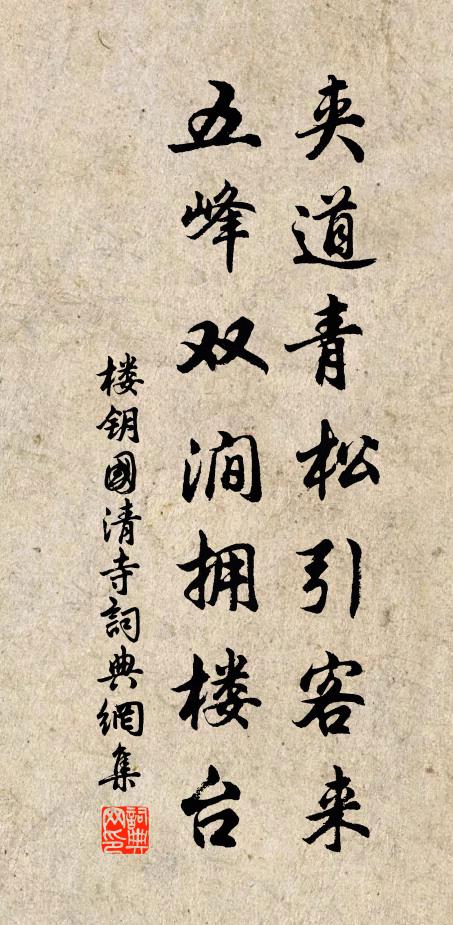 夹道青松引客来
五峰双涧拥楼台
楼钥國清寺詞典網集
詞典网印